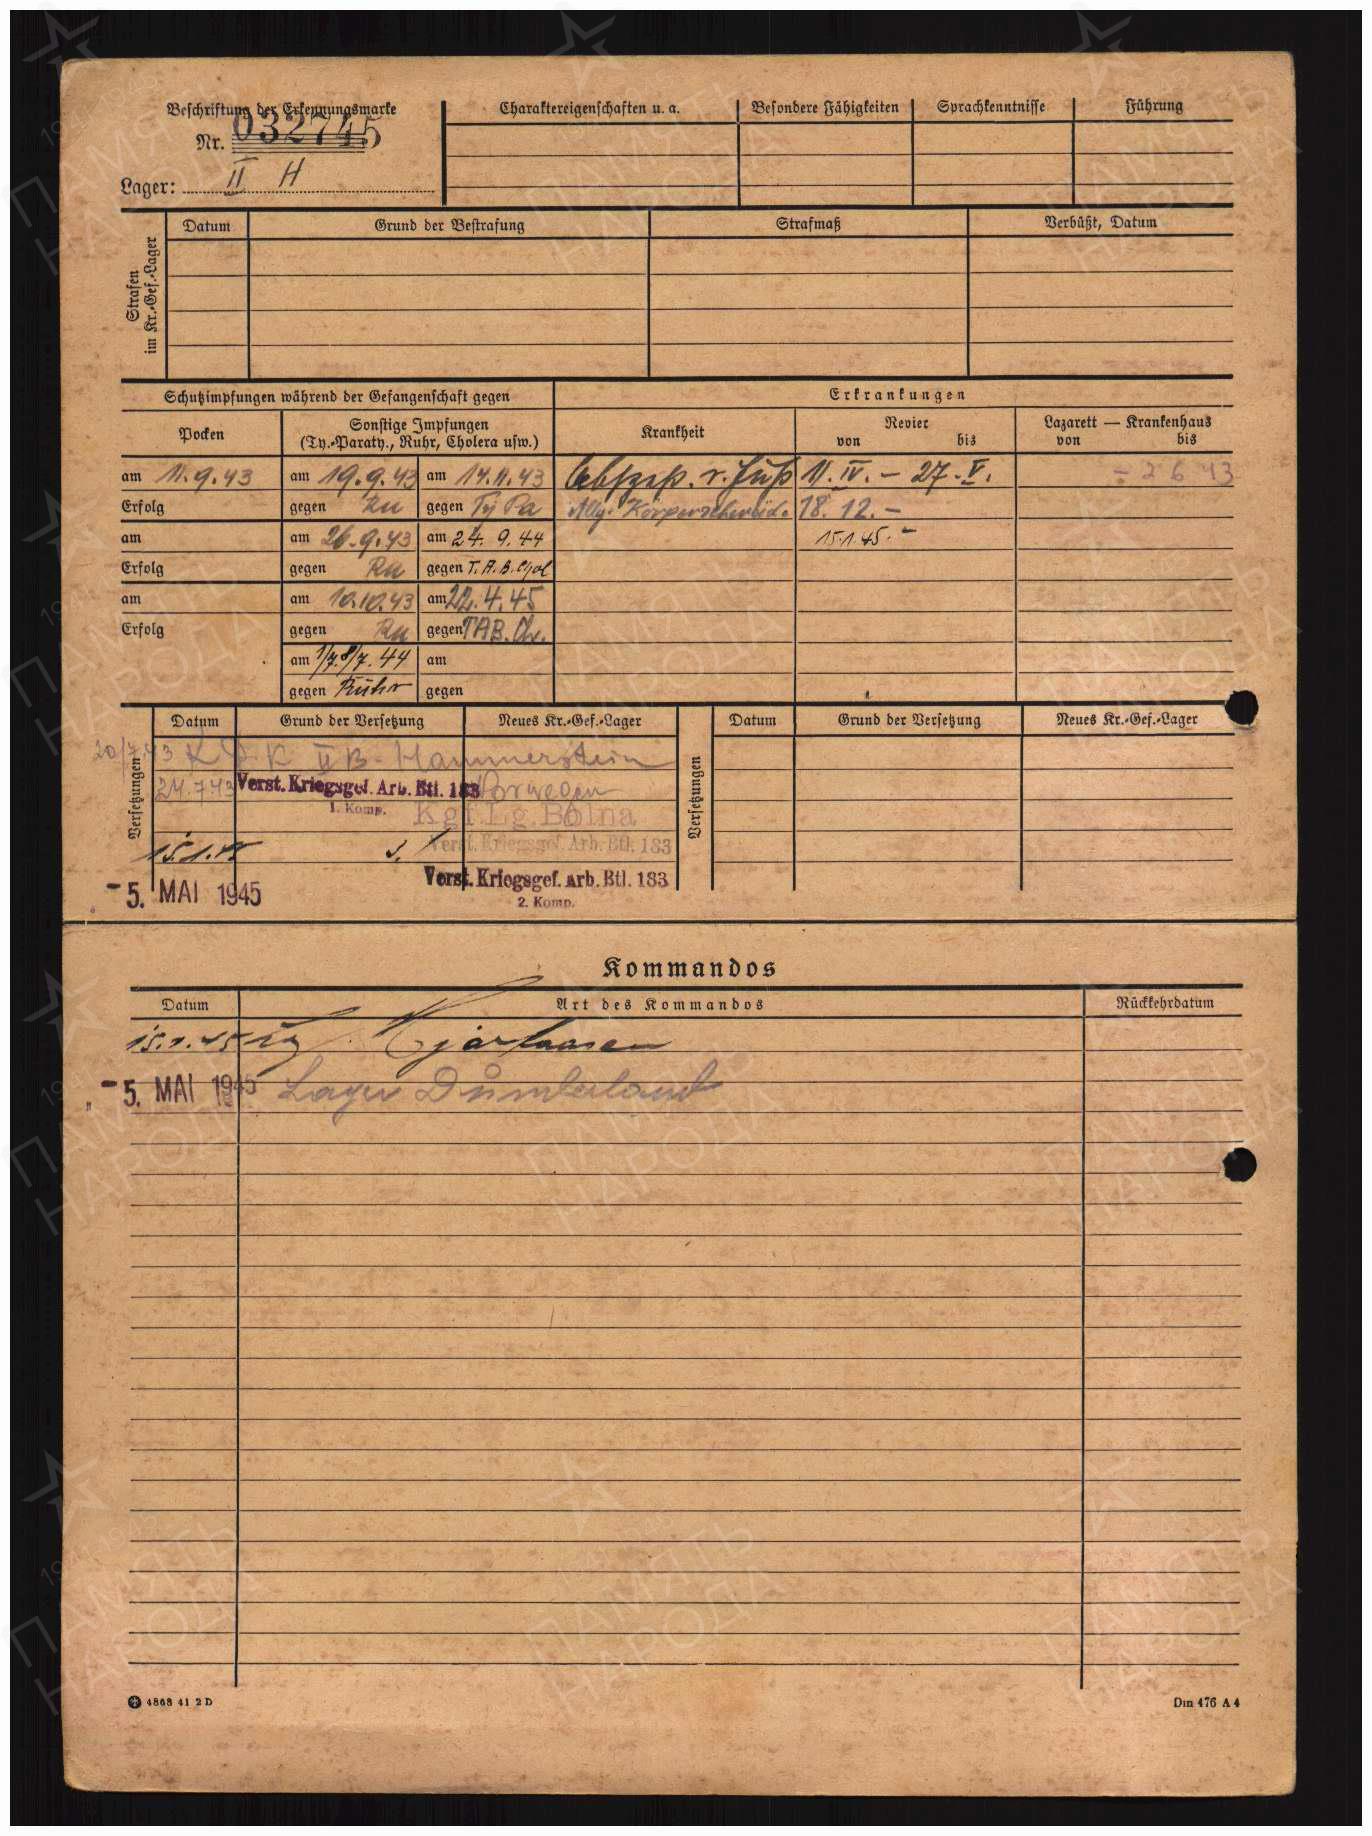 Beschriftung der Erkennungsmarke
Nr. 032745
Lager: II H
Charaktereigenschaften u. a.
Besondere Fähigkeiten
Sprachkenntnisse
Führung
Strafen
im Kr.-Gef.-Lager
Datum
Grund der Bestrafung
Strafmaß
Verbüßt, Datum
Schutzimpfungen während der Gefangenschaft gegen
Erkrankungen
Pocken
Sonstige Impfungen
(Ty.-Paraty., Ruhr, Cholera usw.)
Krankheit
Revier
von bis
Lazarett — Krankenhaus
von bis
am 11.9.43 am 19.9.43 am 14.11.43 r. Fuß 11. IV. – 27. V. – 2 6 43
Erfolg gegen Ru gegen Ty Pa Allg. 18. 12. –
am am 26.9.43 am 24. 9. 44 15.1.45. –
Erfolg gegen Ru gegen T.A.B.Chol
am am 10.10.43 am 22.4.45
Erfolg gegen Ru gegen TAB. Ch.
am 1/7. 8/7. 44 am
gegen Ruhr gegen
Versetzungen
Datum
Grund der Versetzung
Neues Kr.-Gef.-Lager
Versetzungen
Datum
Grund der Versetzung
Neues Kr.-Gef.-Lager
20/7.43 II B Hammerstein
24.7.43 Verst. Kriegsgef. Arb. Btl. 183 Norwegen
1. Komp. Kgf.Lg. Bolna
Verst. Kriegsgef. Arb. Btl. 183
15.1.45
-5. MAI 1945 Verst. Kriegsgef. Arb. Btl. 183
2. Komp.
Kommandos
Datum
Art des Kommandos
Rückkehrdatum
15.1.45
-5. MAI 1945 Lager Dunderland
4868 41 2 D
Din 476 A 4
ПАМЯТЬ
НАРОДА